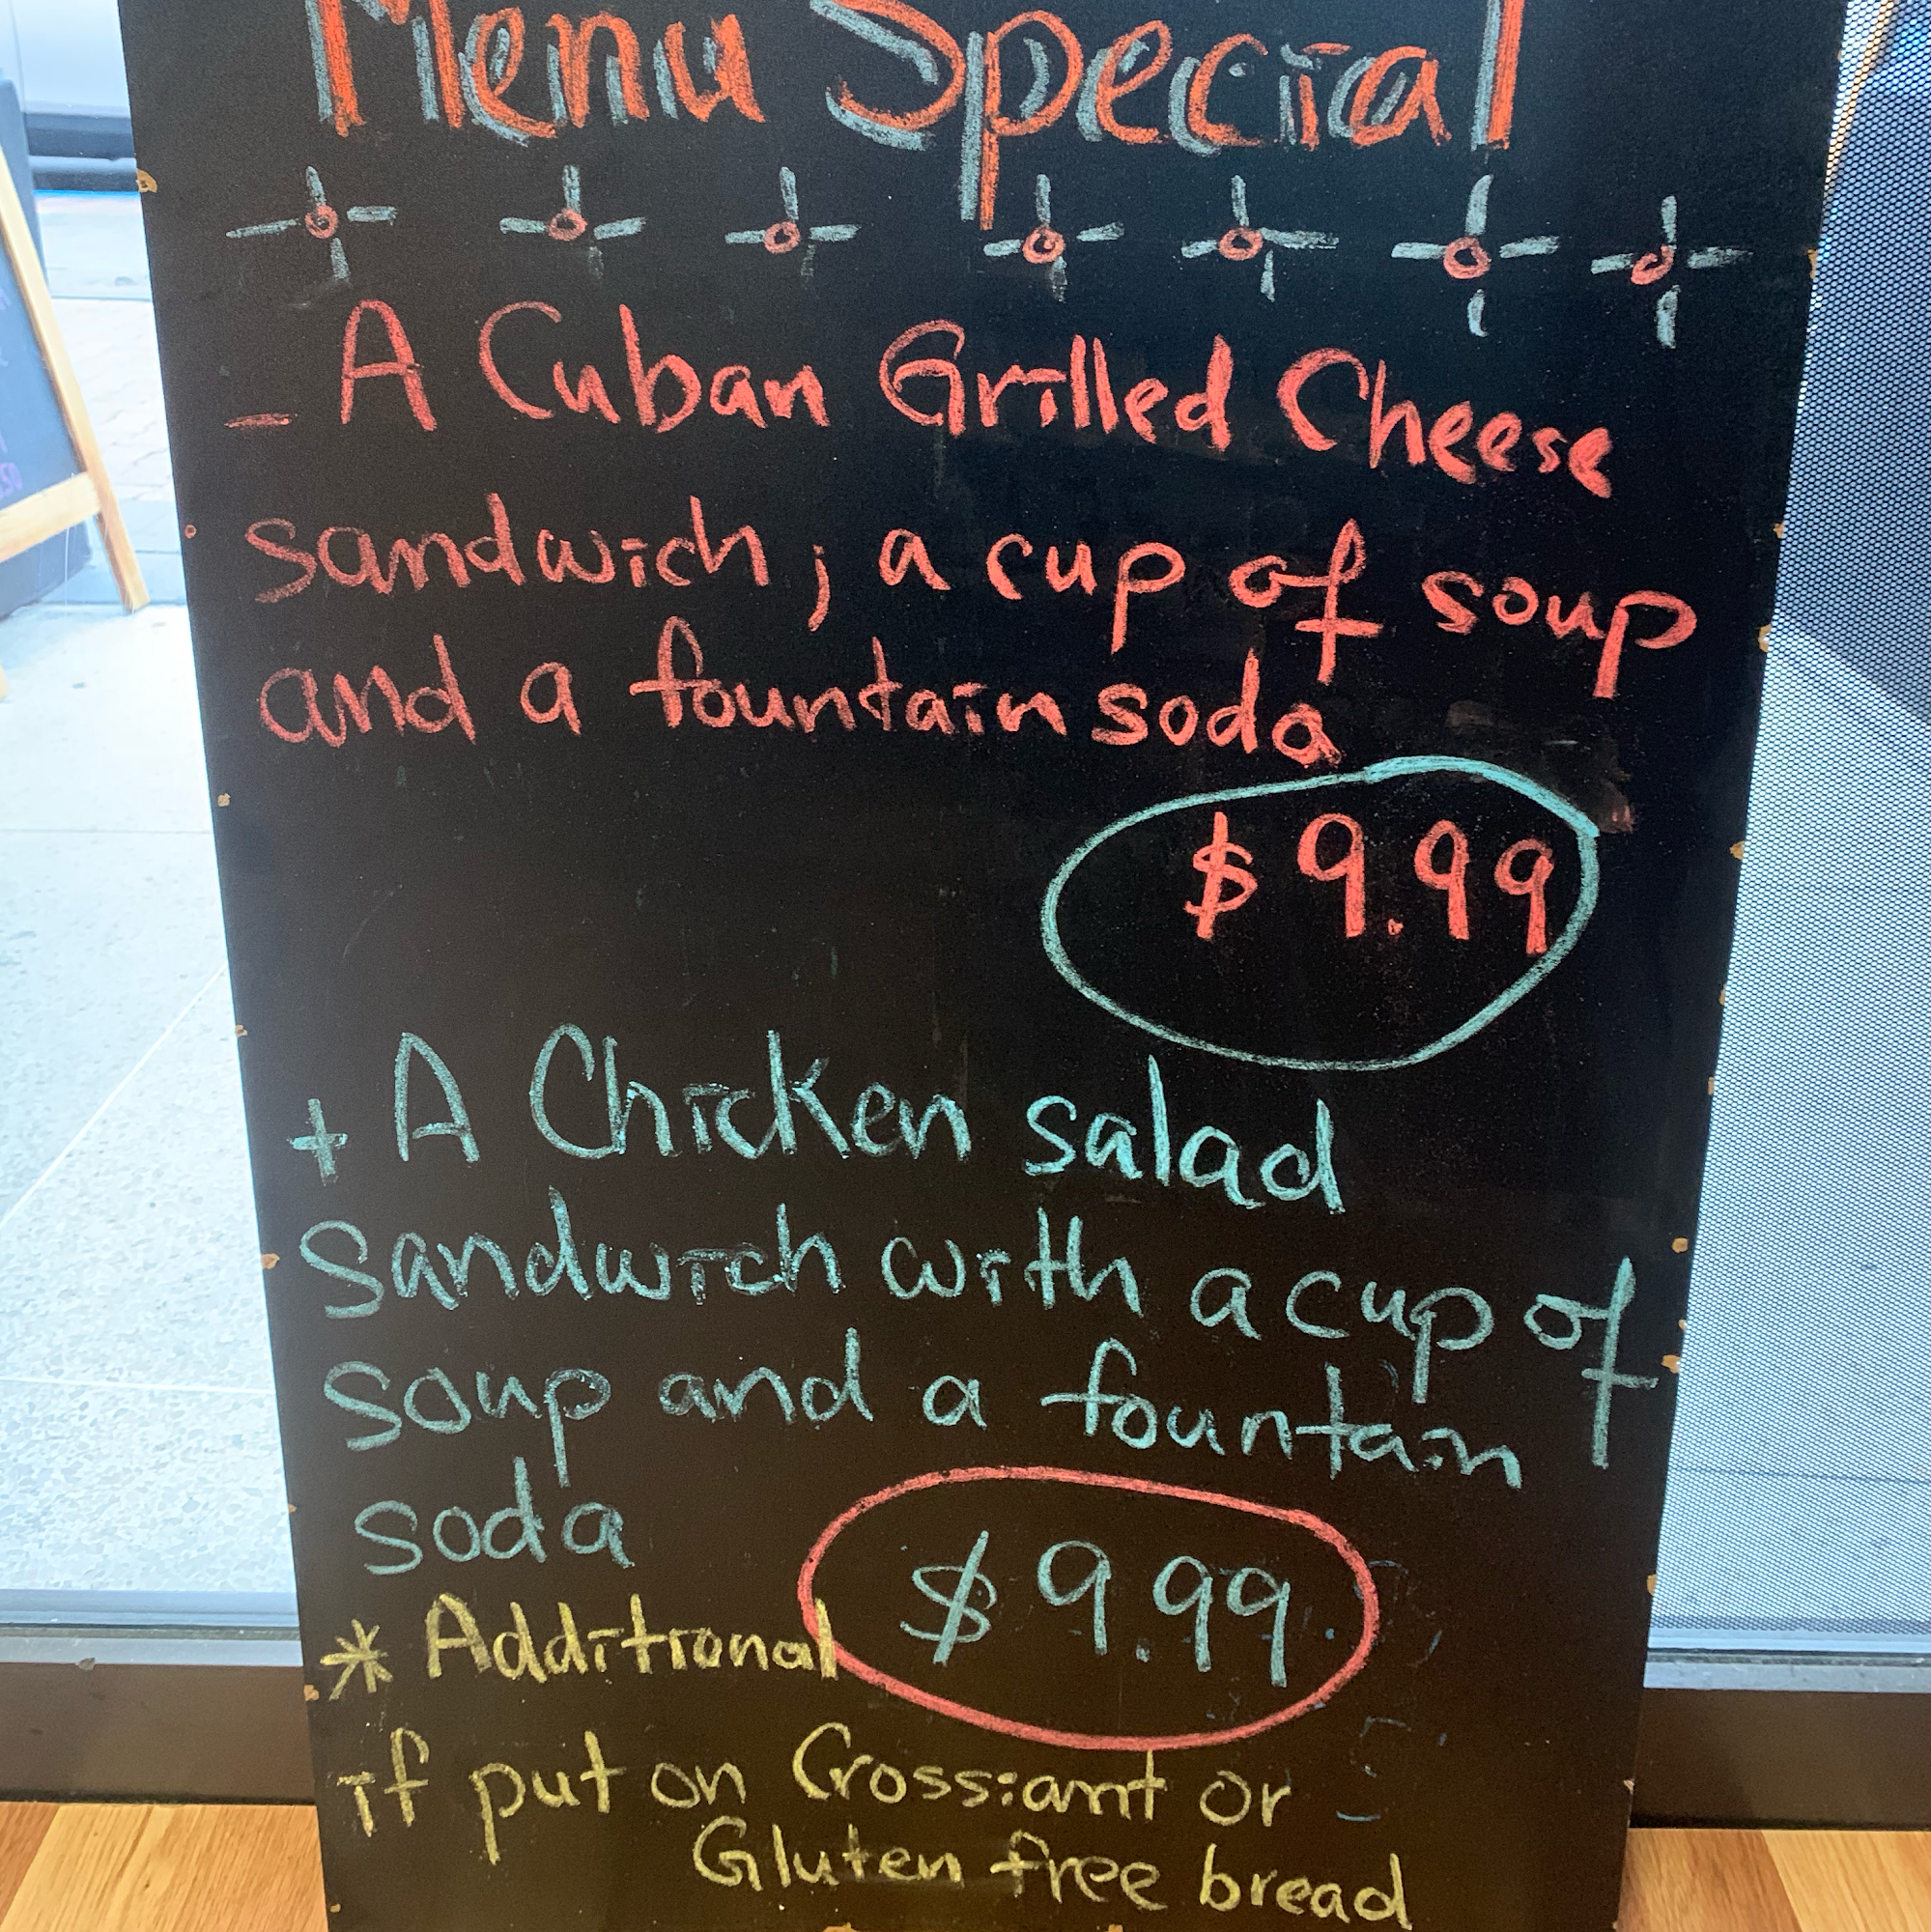 Menu Special
- A Cuban Grilled Cheese
sandwich; a cup of soup
and a fountain soda
$9.99
+ A Chicken salad
Sandwich with a cup of
soup and a fountain
soda
$9.99
* Additional
if put on Crossiant or
Gluten free bread